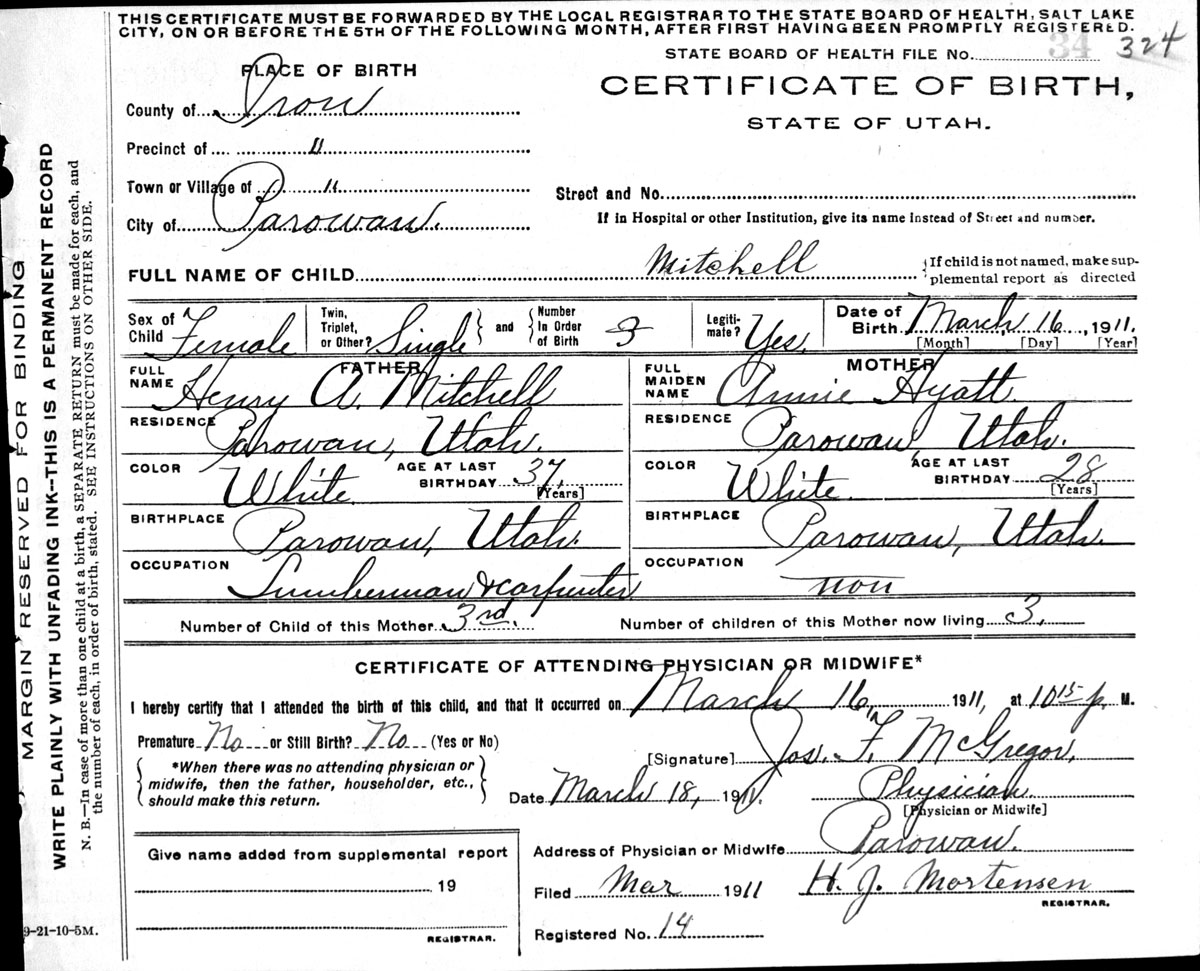 THIS CERTIFICATE MUST BE FORWARDED BY THE LOCAL REGISTRAR TO THE STATE BOARD OF HEALTH, SALT LAKE
CITY, ON OR BEFORE THE 5TH OF THE FOLLOWING MONTH, AFTER FIRST HAVING BEEN PROMPTLY REGISTERED.
STATE BOARD OF HEALTH FILE No. 34 324
PLACE OF BIRTH
CERTIFICATE OF BIRTH,
STATE OF UTAH.
County of Iron
Precinct of "
Town or Village of "
Street and No.
City of Parowan.
If in Hospital or other Institution, give its name instead of Street and number.
FULL NAME OF CHILD Mitchell
If child is not named, make sup-
plemental report as directed
Sex of Child Female
Twin, Triplet, or Other? Single
and Number In Order of Birth 3
Legiti-mate? Yes.
Date of Birth March 16, 1911.
[Month] [Day] [Year]
FATHER
FULL NAME Henry A. Mitchell
MOTHER
FULL MAIDEN NAME Annie Hyatt
RESIDENCE Parowan, Utah.
RESIDENCE Parowan, Utah.
COLOR White. AGE AT LAST BIRTHDAY 37, [Years]
COLOR White. AGE AT LAST BIRTHDAY 28 [Years]
BIRTHPLACE Parowan, Utah.
BIRTHPLACE Parowan, Utah.
OCCUPATION Lumberman & carpenter
OCCUPATION non
Number of Child of this Mother 3rd.
Number of children of this Mother now living 3,
CERTIFICATE OF ATTENDING PHYSICIAN OR MIDWIFE*
I hereby certify that I attended the birth of this child, and that it occurred on March 16, 1911, at 10 15 p. M.
Premature No or Still Birth? No (Yes or No)
*When there was no attending physician or
midwife, then the father, householder, etc.,
should make this return.
[Signature] Jos. F. McGregor,
Date March 18, 1911. Physician
[Physician or Midwife]
Address of Physician or Midwife Parowan.
Give name added from supplemental report
19
REGISTRAR.
Filed Mar 1911 H. J. Mortensen
REGISTRAR.
Registered No. 14
9-21-10-5M.
MARGIN RESERVED FOR BINDING
WRITE PLAINLY WITH UNFADING INK--THIS IS A PERMANENT RECORD
N. B.—In case of more than one child at a birth, a SEPARATE RETURN must be made for each, and
the number of each, in order of birth, stated. SEE INSTRUCTIONS ON OTHER SIDE.